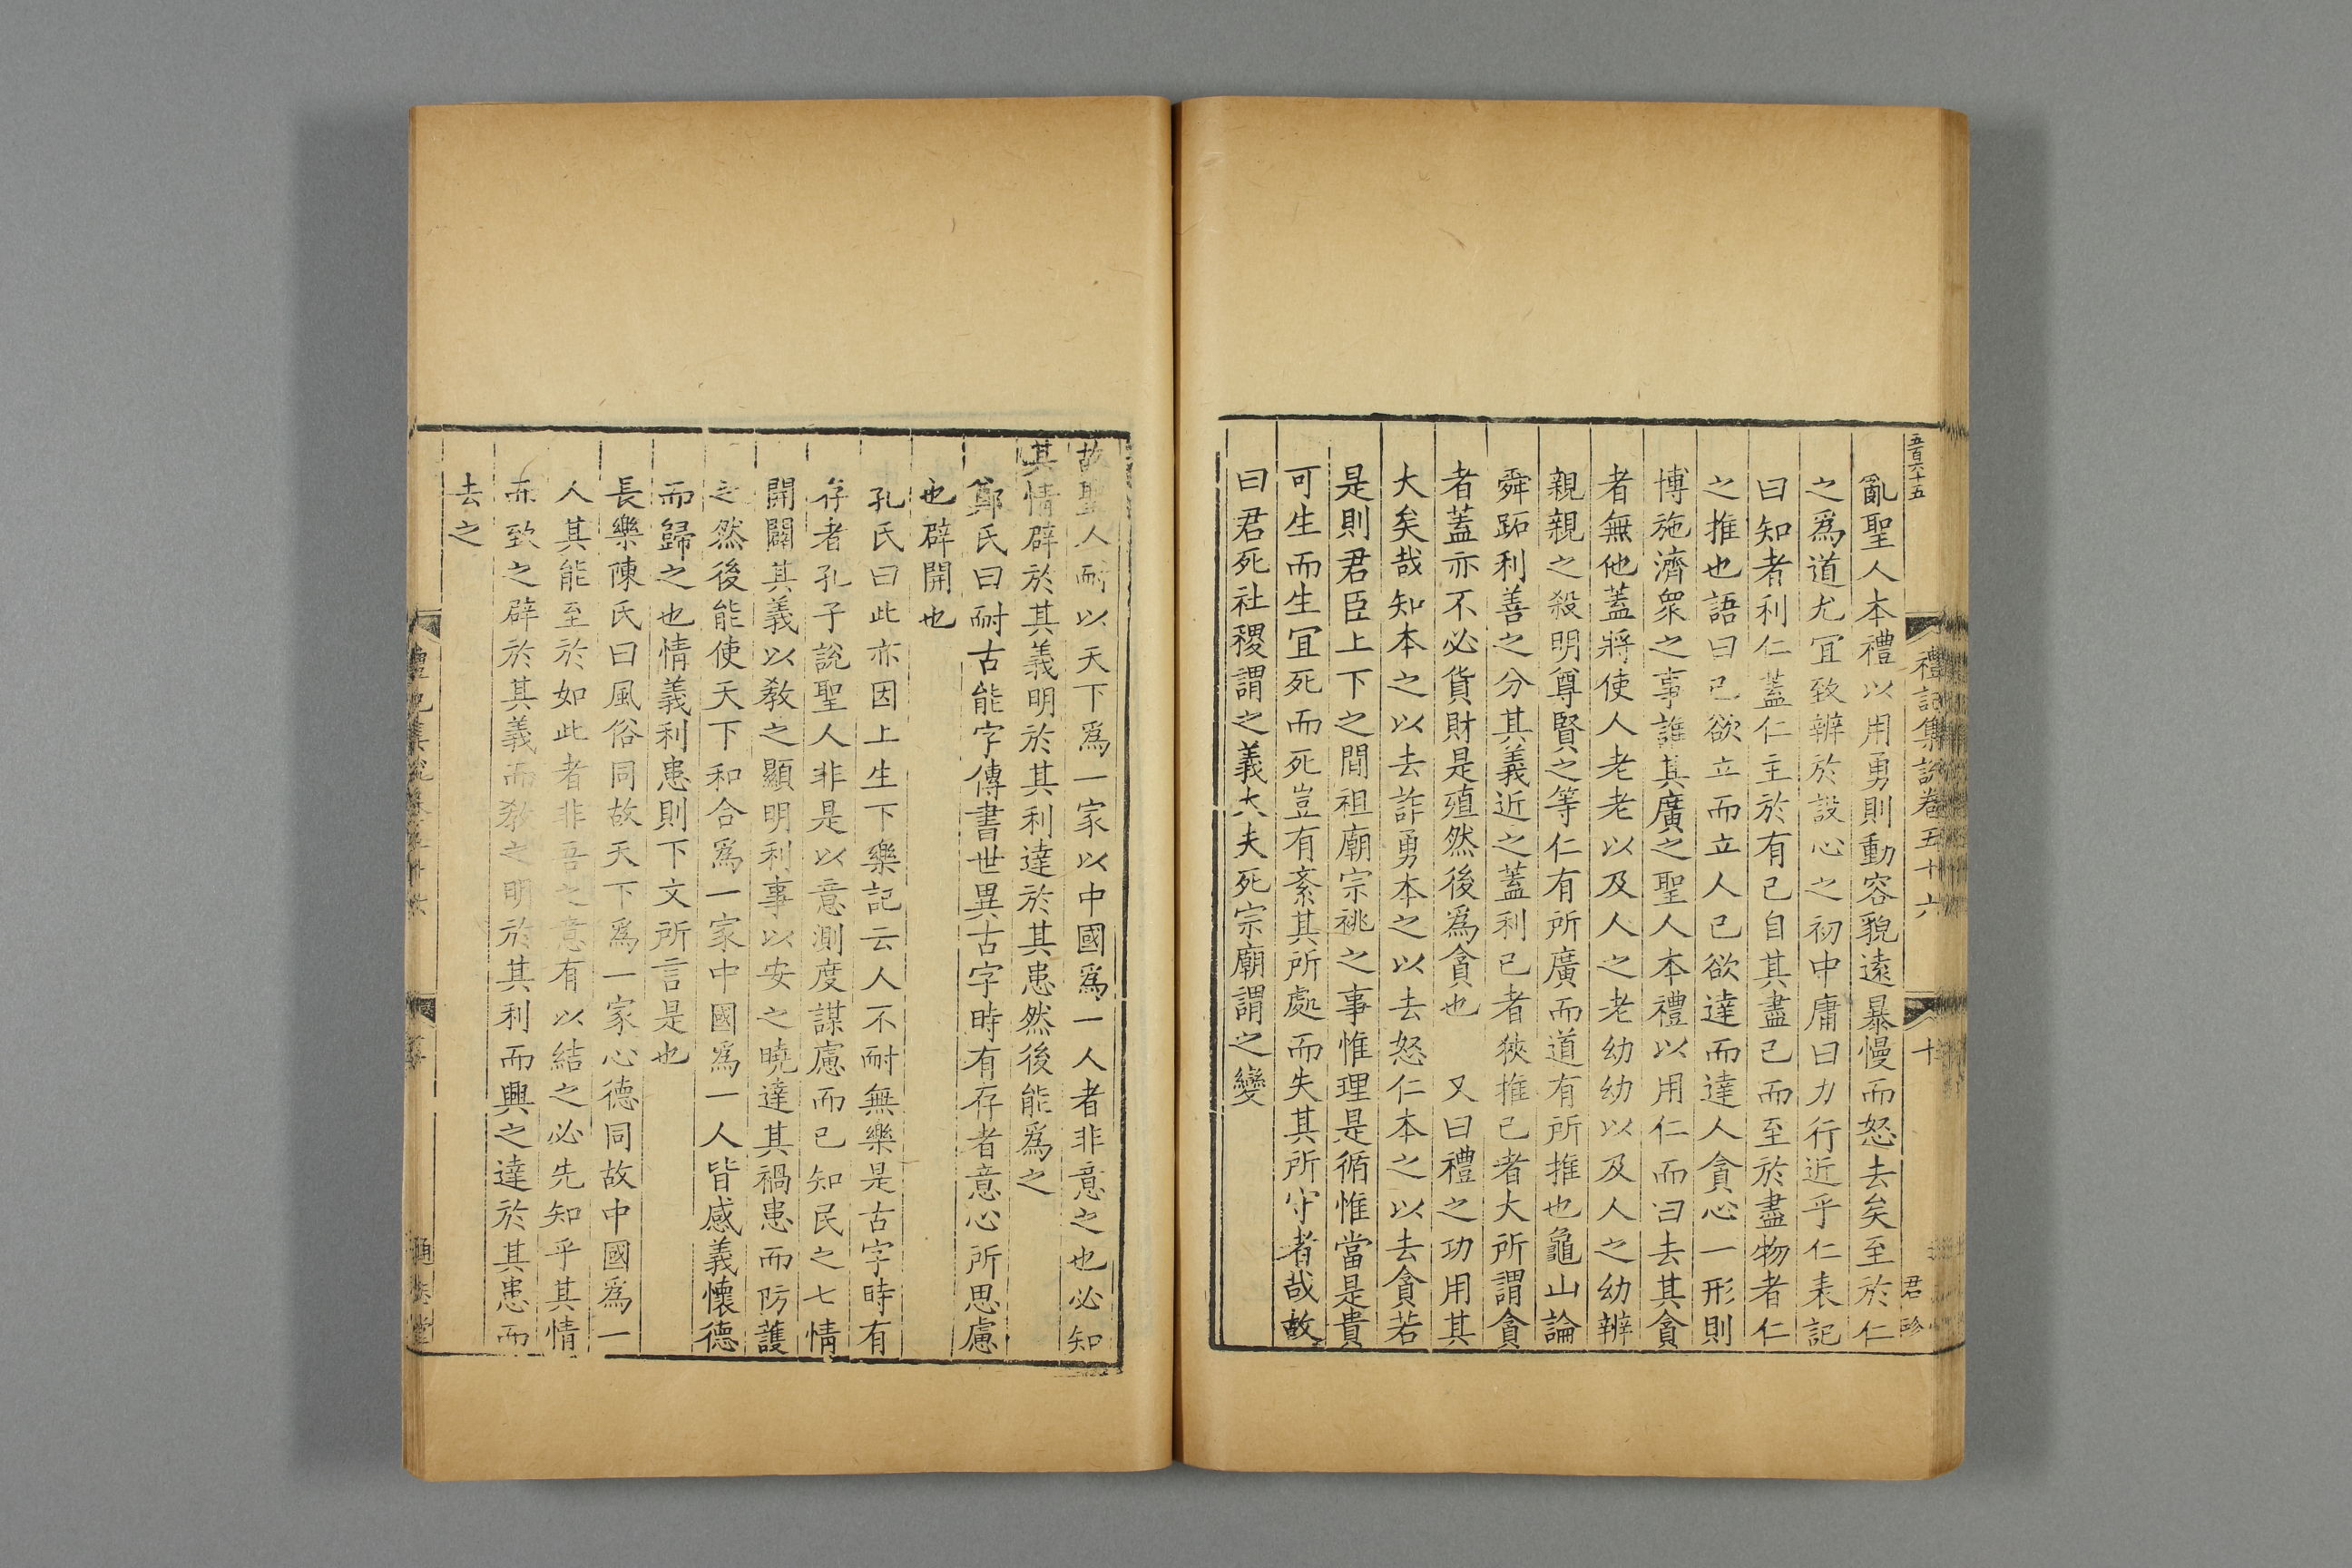 五百六十五
禮記集說卷五十六
十
君珍
亂聖人本禮以用勇則動容貌遠暴慢而怒去矣至於仁
之爲道尤宜致辨於設心之初中庸曰力行近乎仁表記
曰知者利仁蓋仁主於有己自其盡己而至於盡物者仁
之推也語曰己欲立而立人己欲達而達人貪心一形則
博施濟衆之事誰其廣之聖人本禮以用仁而曰去其貪
者無他蓋將使人老老以及人之老幼幼以及人之幼辨
親親之殺明尊賢之等仁有所廣而道有所推也龜山論
舜跖利善之分其義近之蓋利己者狹推己者大所謂貪
者蓋亦不必貨財是殖然後爲貪也 又曰禮之功用其
大矣哉知本之以去詐勇本之以去怒仁本之以去貪若
是則君臣上下之間祖廟宗祧之事惟理是循惟當是貴
可生而生宜死而死豈有紊其所處而失其所守者哉故
曰君死社稷謂之義大夫死宗廟謂之變
故聖人耐以天下爲一家以中國爲一人者非意之也必知
其情辟於其義明於其利達於其患然後能爲之
鄭氏曰耐古能字傳書世異古字時有存者意心所思慮
也辟開也
孔氏曰此亦因上生下樂記云人不耐無樂是古字時有
存者孔子說聖人非是以意測度謀慮而已知民之七情
開闢其義以教之顯明利事以安之曉達其禍患而防護
之然後能使天下和合爲一家中國爲一人皆感義懷德
而歸之也情義利患則下文所言是也
長樂陳氏曰風俗同故天下爲一家心德同故中國爲一
人其能至於如此者非吾之意有以結之必先知乎其情
而致之辟於其義而教之明於其利而興之達於其患而
去之
禮記集說卷五十六
通志堂